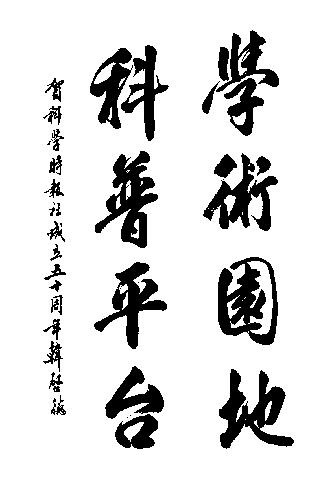 學術園地
科普平台
賀科學時報社成立五十周年韓啓德